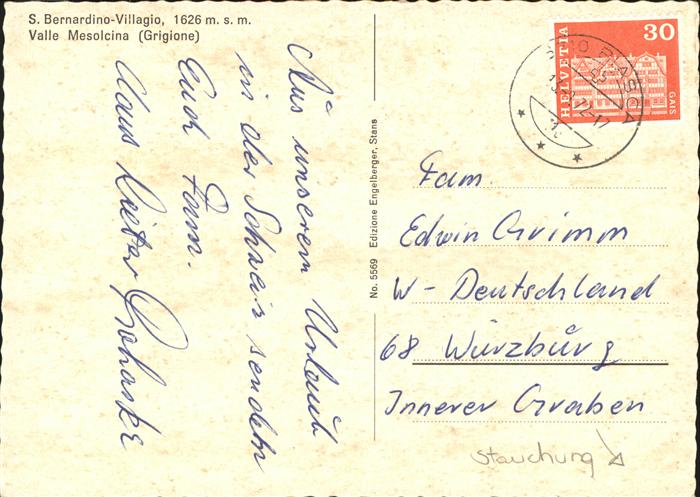 S. Bernardino-Villagio, 1626 m. s. m.
Valle Mesolcina (Grigione)
Aus unserem Urlaub
in der Schweiz senden
Euch Fam.
Claus Dieter
No. 5569 Edizione Engelberger, Stans
HELVETIA
30
GAIS
Fam.
Edwin Grimm
W- Deutschland
68 Würzburg
Innerer Graben
Stauchung